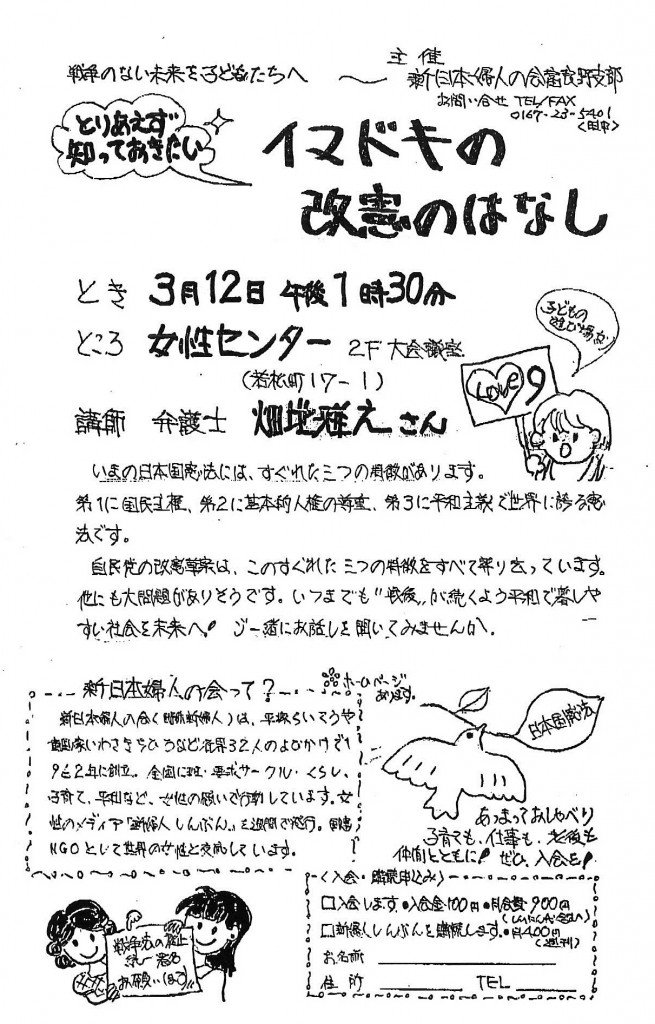 戦争のない未来を子どもたちへ
主催
新日本婦人の会富良野支部
お問い合せ TEL/FAX
0167-23-5401
<田中>
とりあえず
知っておきたい
イマドキの
改憲のはなし
とき 3月12日 午後1時30分
ところ 女性センター 2F 大会議室
(若松町17-1)
講師 弁護士 畑地雅之さん
子どもの
遊び場が
LOVE 9
いまの日本国憲法には、すぐれた三つの特徴があります。
第1に国民主権、第2に基本的人権の尊重、第3に平和主義で世界に誇る憲
法です。
自民党の改憲草案は、このすぐれた三つの特徴をすべて葬り去っています。
他にも大問題がありそうです。いつまでも“戦後„が続くよう平和で暮しや
すい社会を未来へ! ご一緒にお話しを聞いてみませんか。
新日本婦人の会って?
ホームページ
あります。
新日本婦人の会(略称新婦人)は、平塚らいてうや
童画家いわさきちひろなど在界32人のよびかけで1
962年に創立。全国に班・要求サークル・くらし、
子育て、平和など、女性の願いで行動しています。女
性のメディア「新婦人しんぶん」を週間で発行。国連
NGOとして世界の女性と交流しています。
日本国憲法
あつまっておしゃべり
子育ても、仕事も、老後も
仲間とともに! ぜひ、入会を!
<入会・購読申込み>
□入会します。●入会金100円●月会費900円
(しんぶん代含む)
□新婦人しんぶんを購読します。●月400円
(週刊)
お名前
住所 TEL
戦争法の廃止
お願いします